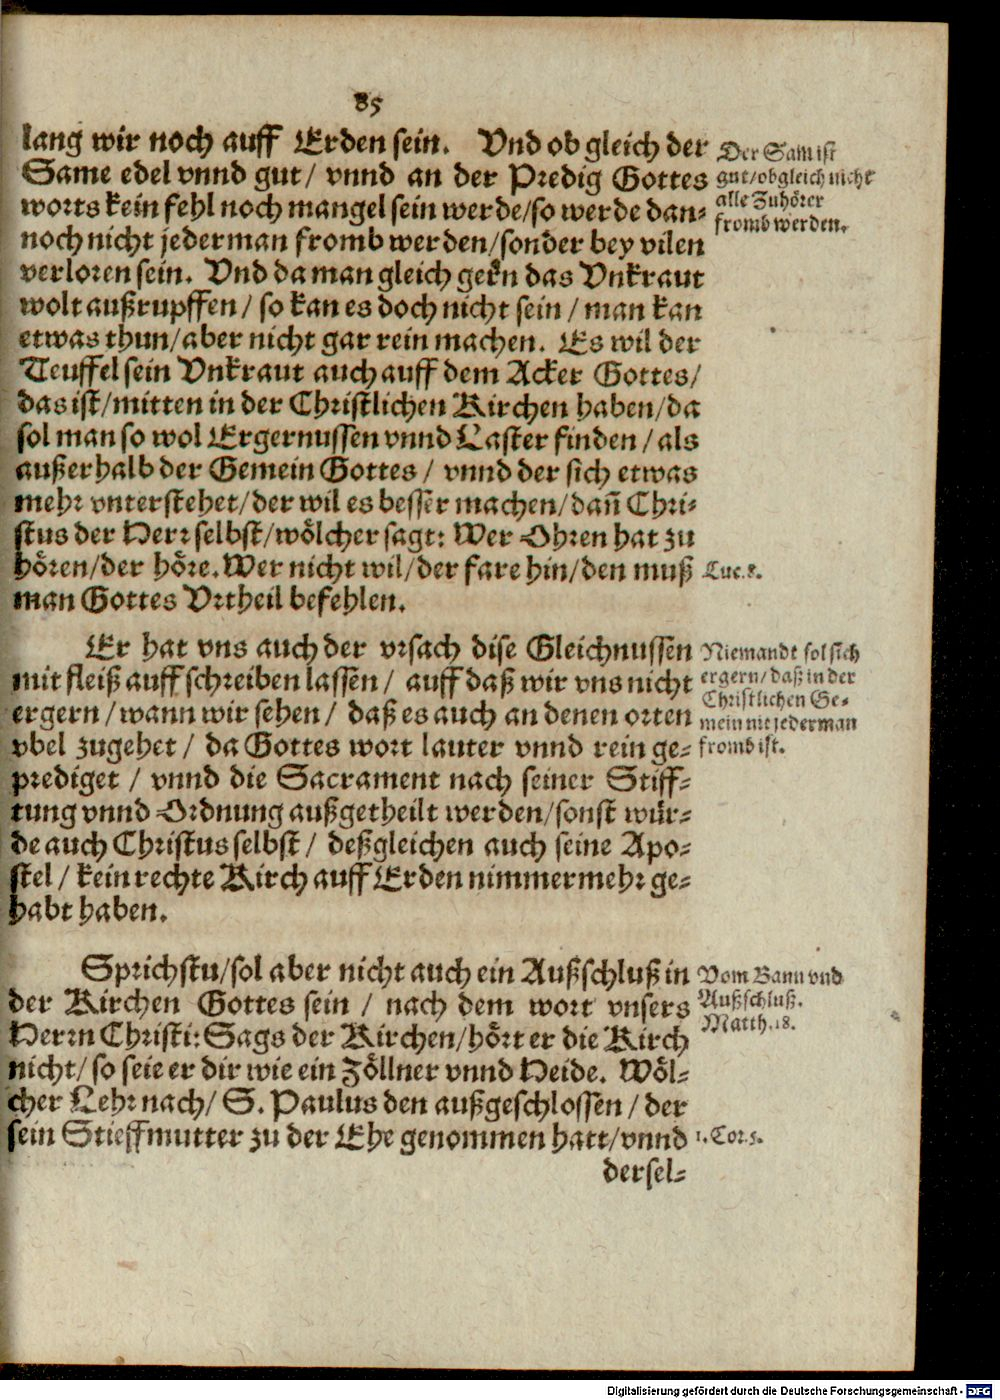 85
lang wir noch auff Erden sein. Vnd ob gleich der
Same edel vnnd gut / vnnd an der Predig Gottes
worts kein fehl noch mangel sein werde/so werde dan-
noch nicht jederman fromb werden/sonder bey vilen
verloren sein. Vnd da man gleich gern das Vnkraut
wolt außrupffen / so kan es doch nicht sein / man kan
etwas thun/aber nicht gar rein machen. Es wil der
Teuffel sein Vnkraut auch auff dem Acker Gottes/
das ist/mitten in der Christlichen Kirchen haben/da
sol man so wol Ergernussen vnnd Laster finden / als
außerhalb der Gemein Gottes / vnnd der sich etwas
mehr vnterstehet/der wil es besser machen/dañ Chri-
stus der Herr selbst/wölcher sagt: Wer Ohren hat zu
hören/der höre. Wer nicht wil/der fare hin/den muß
man Gottes Vrtheil befehlen.
Der Sam ist
gut/ob gleich nicht
alle Zuhörer
fromb werden.
Luc. 8.
Er hat vns auch der vrsach dise Gleichnussen
mit fleiß auffschreiben lassen / auff daß wir vns nicht
ergern / wann wir sehen / daß es auch an denen orten
vbel zugehet / da Gottes wort lauter vnnd rein ge-
prediget / vnnd die Sacrament nach seiner Stiff-
tung vnnd Ordnung außgetheilt werden/sonst wür-
de auch Christus selbst / deßgleichen auch seine Apo-
stel / kein rechte Kirch auff Erden nimmermehr ge-
habt haben.
Niemandt sol sich
ergern/daß in der
Christlichen Ge-
mein nit jederman
fromb ist.
Sprichstu/sol aber nicht auch ein Außschluß in
der Kirchen Gottes sein / nach dem wort vnsers
Herrn Christi: Sags der Kirchen/hört er die Kirch
nicht/so seie er dir wie ein Zöllner vnnd Heide. Wöl-
cher Lehr nach/ S. Paulus den außgeschlossen / der
sein Stieffmutter zu der Ehe genommen hatt/vnnd
dersel-
Vom Bann vnd
Außschluß.
Matth. 18.
1. Cor. 5.
Digitalisierung gefördert durch die Deutsche Forschungsgemeinschaft - DFG